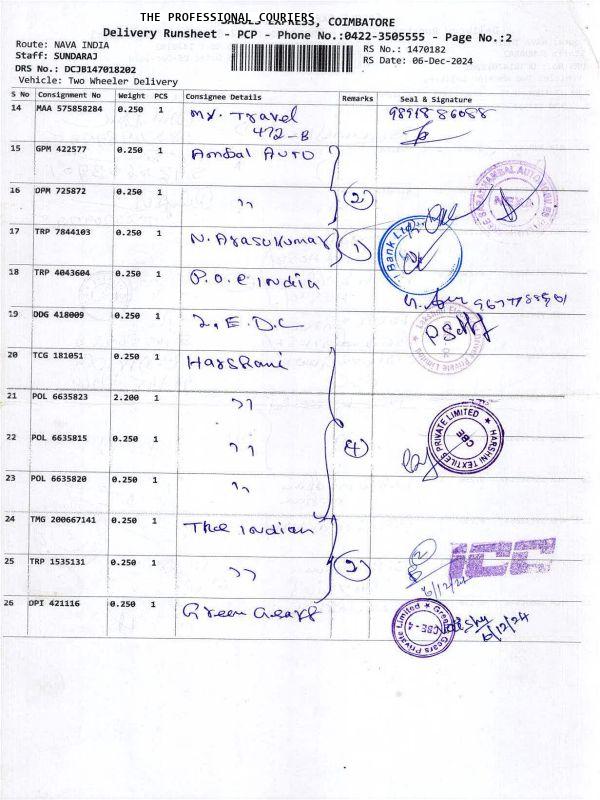 THE PROFESSIONAL COURIERS
EXPRESS, COIMBATORE
Delivery Runsheet - PCP - Phone No.:0422-3505555 - Page No.:2
Route: NAVA INDIA
RS No.: 1470182
Staff: SUNDARAJ
RS Date: 06-Dec-2024
DRS No.: DCJB147018202
Vehicle: Two Wheeler Delivery
S No Consignment No Weight PCS Consignee Details Remarks Seal & Signature
14 MAA 575858284 0.250 1 My. Travel
472-B
15 GPM 422577 0.250 1 Ambal AUTO
16 DPM 725872 0.250 1 " (2)
17 TRP 7844103 0.250 1 N. Arasukumar (1) Bank
18 TRP 4043604 0.250 1 P.O.C India
19 DDG 418009 0.250 1 L.E.D.C
Private Limited
20 TCG 181051 0.250 1 Harshani
21 POL 6635823 2.200 1 "
22 POL 6635815 0.250 1 " (4) HARSHNI TEXTILES PRIVATE LIMITED
CBE
23 POL 6635820 0.250 1 "
24 TMG 200667141 0.250 1 The Indian
25 TRP 1535131 0.250 1 " (2) ICC
6/12/24
26 DPI 421116 0.250 1 Green Gears
Green Gears Private Limited
CBE - 4
6/12/24